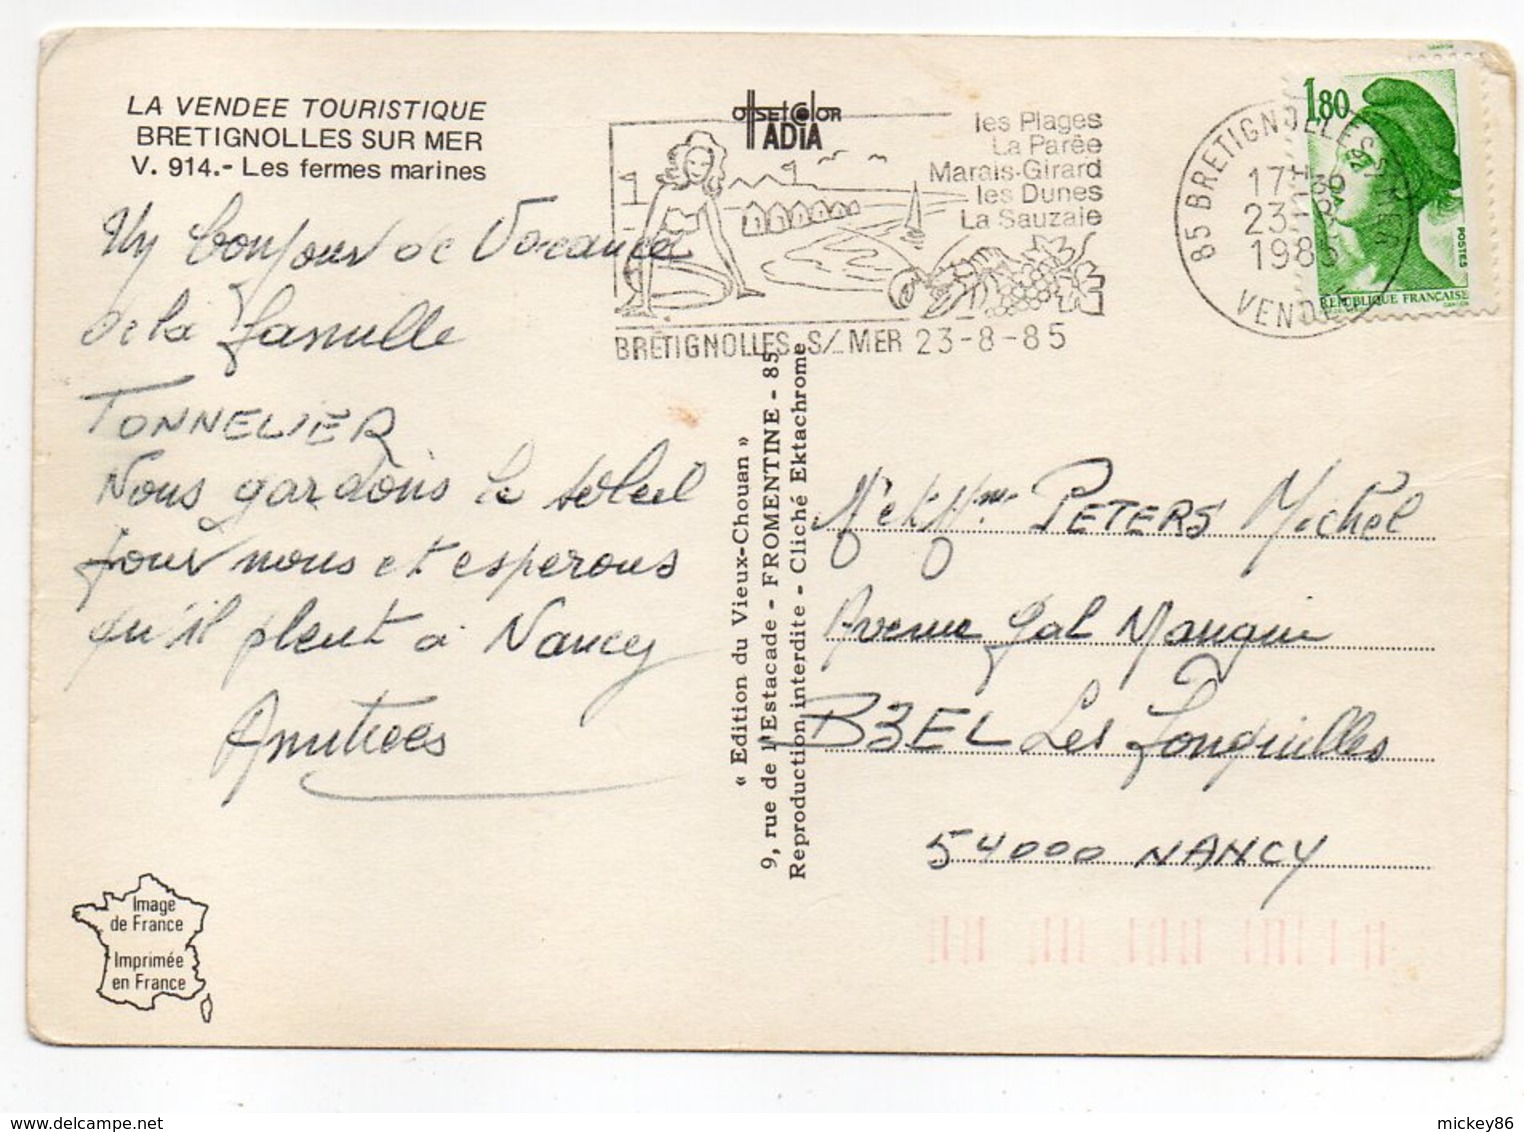 LA VENDEE TOURISTIQUE
BRETIGNOLLES SUR MER
V. 914.- Les fermes marines
Un bonjour de Vacance
de la famille
TONNELIER
Nous gardons le soleil
pour nous et esperons
qu'il pleut à Nancy
Amitiees
Image
de France
Imprimée
en France
offset color
ADIA
les Plages
La Parée
Marais-Girard
les Dunes
La Sauzaie
BRETIGNOLLES S/ MER 23-8-85
85 BRETIGNOLLES S/ MER
17H30
23-8
1985
VENDEE
1,80
POSTES
REPUBLIQUE FRANÇAISE
« Edition du Vieux-Chouan »
9, rue de l'Estacade - FROMENTINE - 85
Reproduction interdite - Cliché Ektachrome
Mr et Mme PETERS Michel
Avenue Gal Mangin
B3EL Les Jonquilles
54000 NANCY
mickey86
www.delcampe.net